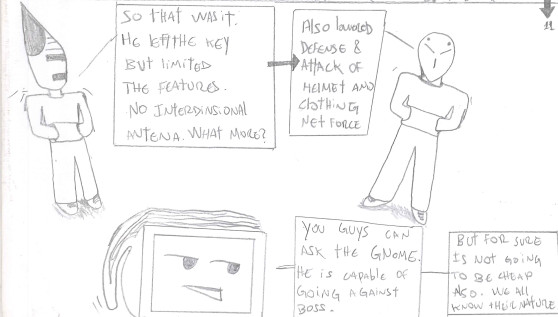 SO THAT WAS IT.
HE LEFT THE KEY
BUT LIMITED
THE FEATURES.
NO INTERDINSIONAL
ANTENA. WHAT MORE?
Also lowered
DEFENSE &
ATTACK OF
HELMET AND
CLOTHING
NET FORCE
11
YOU GUYS CAN
ASK THE GNOME.
HE IS CAPABLE OF
GOING AGAINST
BOSS.
BUT FOR SURE
IS NOT GOING
TO BE CHEAP
ALSO. WE ALL
KNOW THEIR NATURE